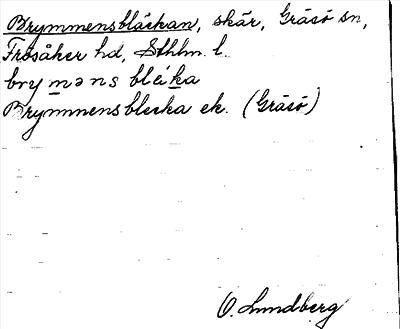 Brymmensbläckan, skär, Gräsö sn,
Frösåker hd, Sthlm. l.
bryməns bleka
Brymmensblecka ek. (Gräsö)
O. Lundberg